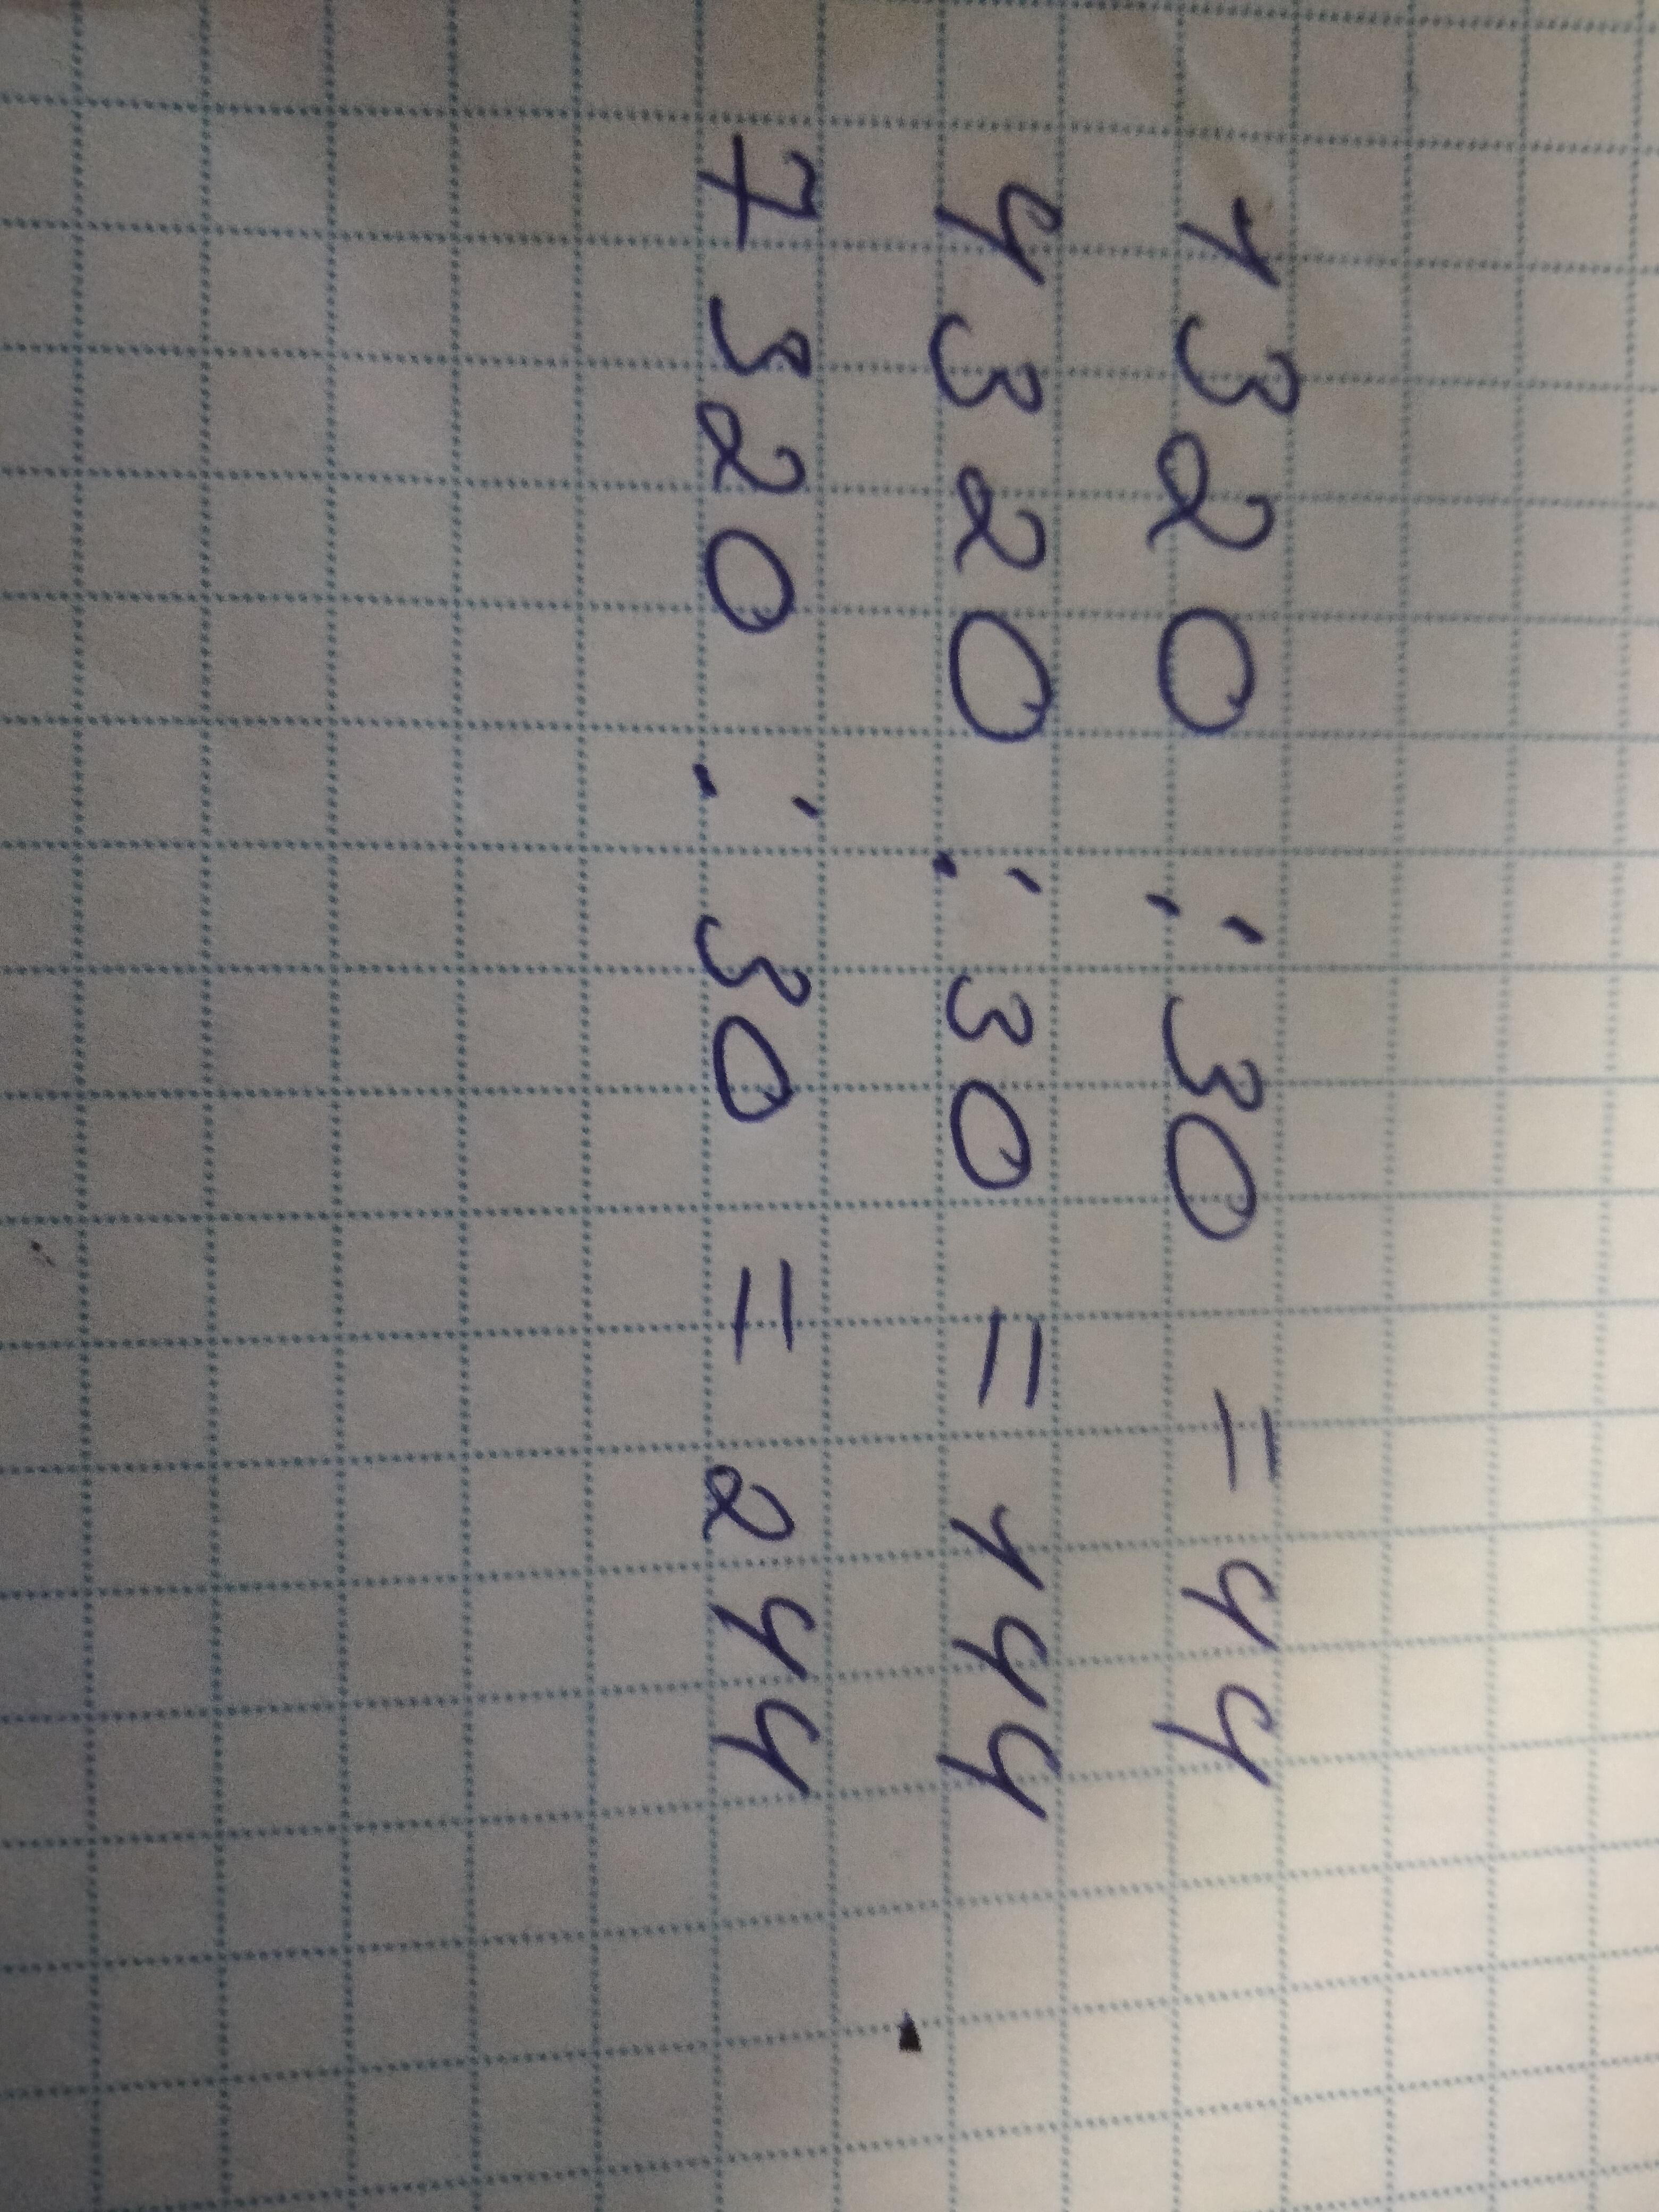 1320 : 30 = 44
4320 : 30 = 144
7320 : 30 = 244